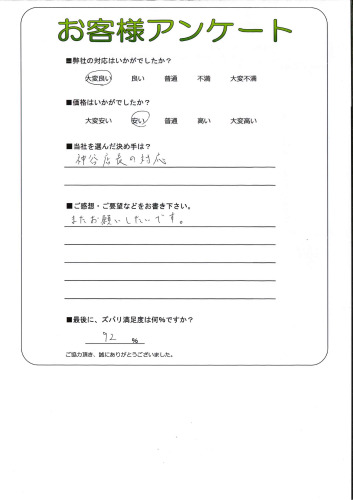 お客様アンケート
■弊社の対応はいかがでしたか?
大変良い 良い 普通 不満 大変不満
■価格はいかがでしたか?
大変安い 安い 普通 高い 大変高い
■当社を選んだ決め手は?
神谷店長の対応
■ご感想・ご要望などをお書き下さい。
またお願いしたいです。
■最後に、ズバリ満足度は何%ですか?
92 %
ご協力頂き、誠にありがとうございました。